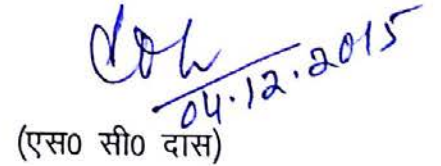 04.12.2015
(एस० सी० दास)